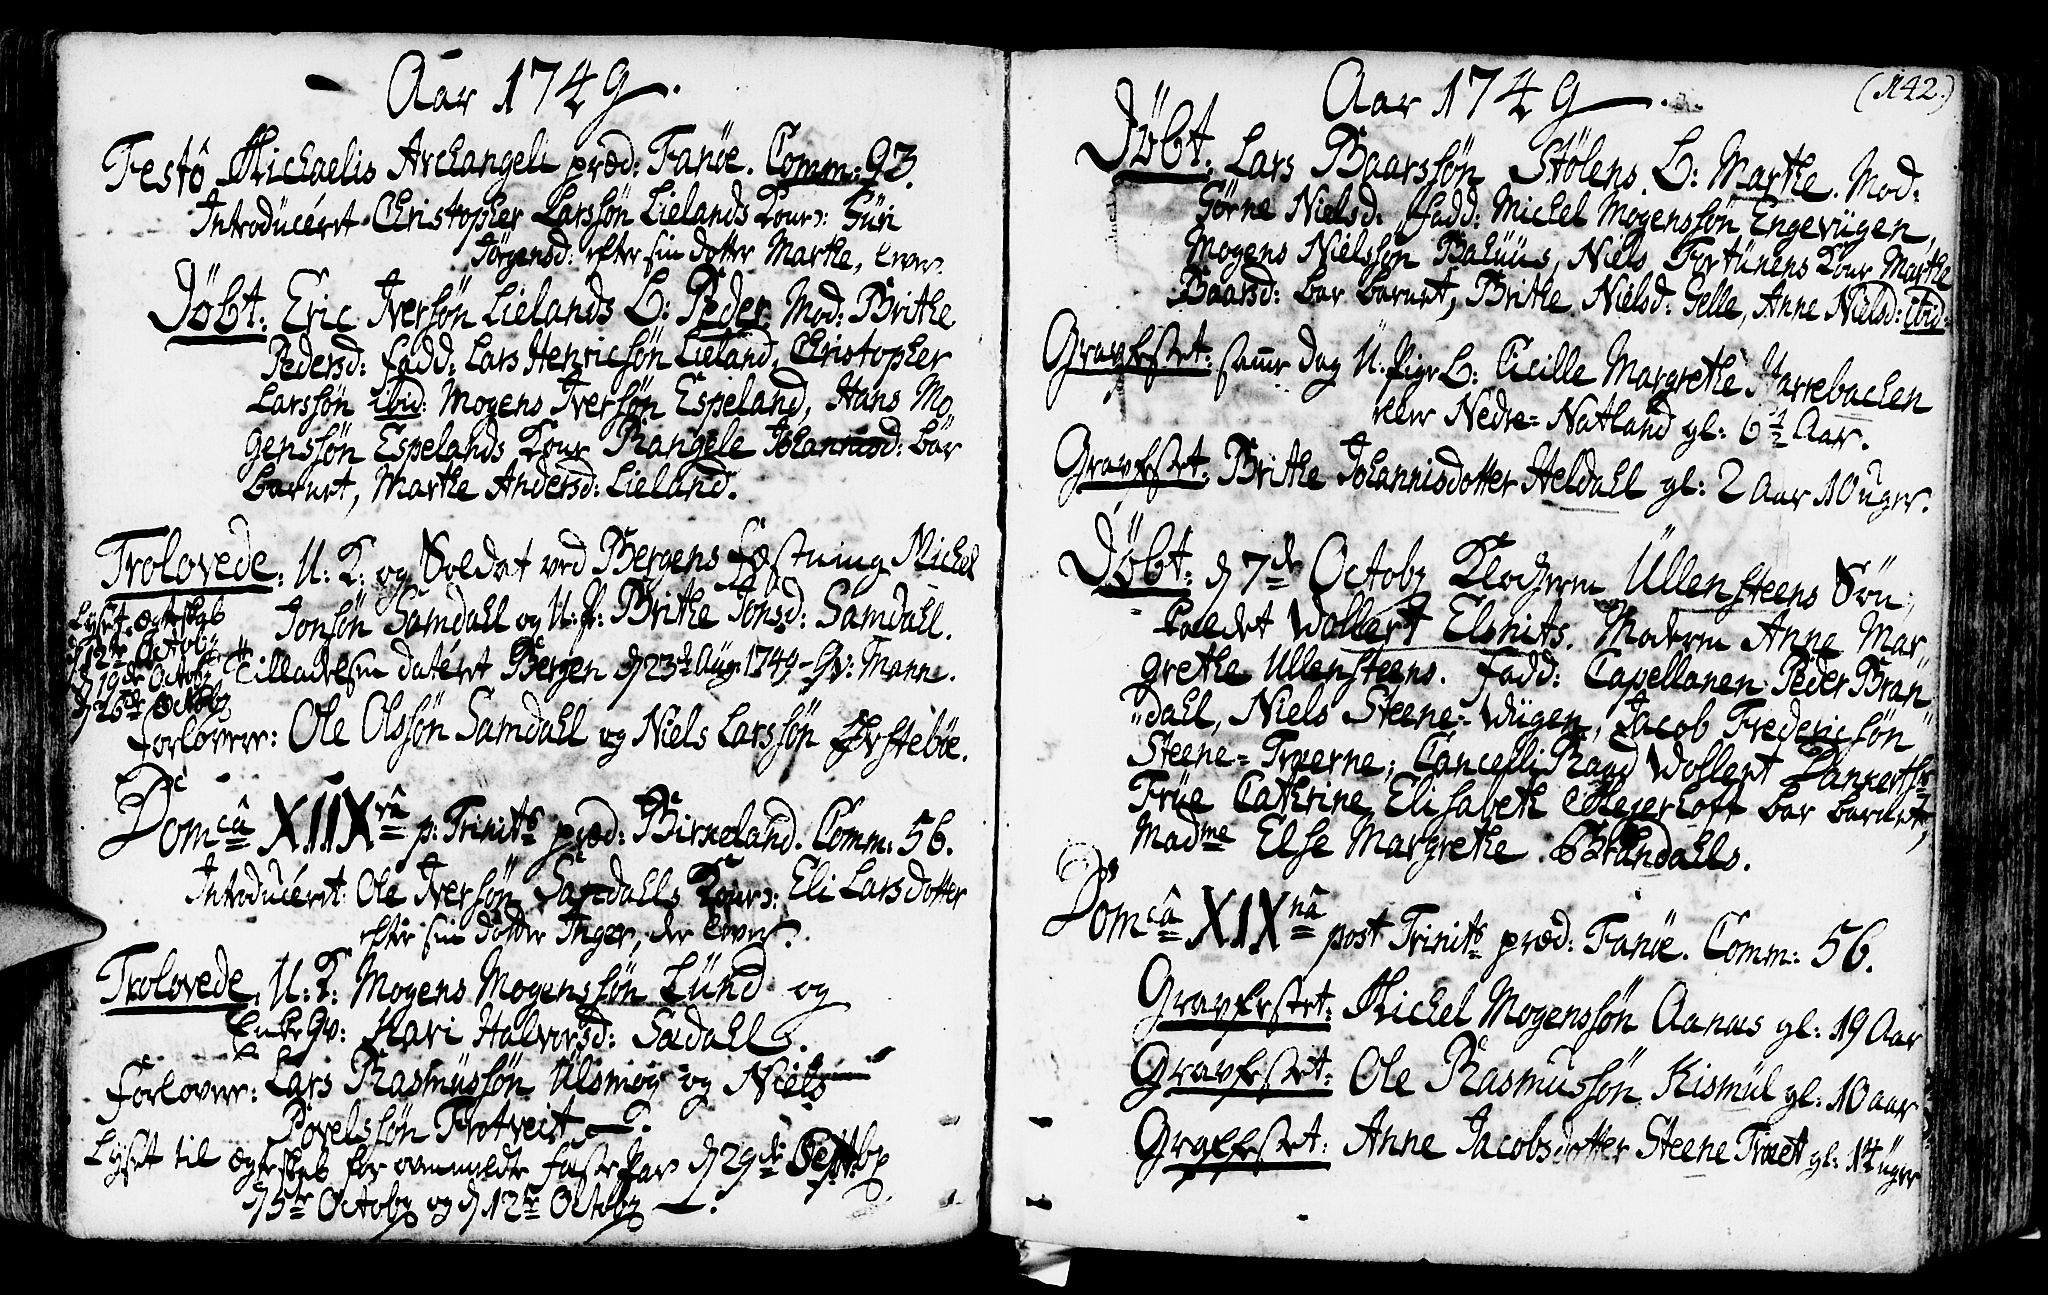 Aar 1749.
Festô Michaelis Archangeli præd: Fanöe. Comm: 93.
Introdücéret Christopher Larssön Lielands Kone: Güri
Jörgensd: efter sin dotter Marthe, lever.
Döbt: Eric Iversön Lielands b: Peder. Mod: Brithe
Pedersd: fadd: Lars Henricsön Lieland, Christopher
Larssön ibid: Mogens Iversön Espeland, Hans Mo„
genssön Espelands Kone Rangele Johannisd: bar
barnet, Marthe Andersd: Lieland.
Trolovede: U: K: og Soldat ved Bergens Fæstning Michel
Jonsön Samdahl og U: P: Brithe Jonsd: Samdahl.
Lyset Ægteskab
d 12te Octobr
d 19de Octobr
d 26de Octobr
Tilladelsen datéret Bergen d 23de Aug. 1749 – Gv: Manne.
Forlovere: Ole Olssön Samdahl og Niels Larssön Birkebøe.
Domcâ XIIXvâ p: Trinits præd: Birkeland. Comm: 56.
Introdücéret: Ole Iversön Sædahls Kone: Eli Larsdotter
efter sin dotter Inger, der lever.
Trolovede, U: K: Mogens Mogenssön Lünd og
Enke Gv: Kari Halvorsd: Sædahl.
Forlovere: Lars Rasmussön Ülsmog og Niels
Povelssön Trotveit.
Lyset til Ægteskab for anmeldte faste Par d 29de Septbr
d 5te Octobr og d 12te Octobr.
Aar 1749.
(142.)
Döbt: Lars Baarssön Stölens b: Marthe. Mod:
Görne Nielsd: Fadd: Michel Mogenssön Engevügen,
Mogens Nielssön Balüüs, Niels Fortünens Kone Marthe
Baarsd: bar barnet, Brithe Nielsd: Selle, Anne Nielsd: ibid:
Gravfæstet: samme dag U. Pige b: Cicille Margrethe Harrebachen
Nedre-Natland gl: 6 1/2 Aar.
Gravfæstet: Brithe Johannisdotter Heldahl gl: 2 Aar 10 uger.
Döbt: d 7de Octobr Klocheren Üllensteens Sön;
kaldet Wollert Elsnits. Moderen Anne Mar„
grethe Ullensteens. Fadd: Capellanen Peder Bran„
„dahl, Niels Steene-Wügen, Jacob Fredericsön
Steene-Træerne; CancelliRaad Wollert Danckertsr
Früe Cathrine Elisabeth Mejerhoft bar barnet,
Madme Else Margrethe Brandahls.
Domcâ XIXnâ post Trinits præd: Fanöe. Comm: 56.
Gravfæstet: Michel Mogenssön Aanæs gl: 19 Aar
Gravfæstet: Ole Rasmussön Kismül gl: 10 aar
Gravfæstet: Anne Jacobsdotter Steene Træet gl: 14 üger